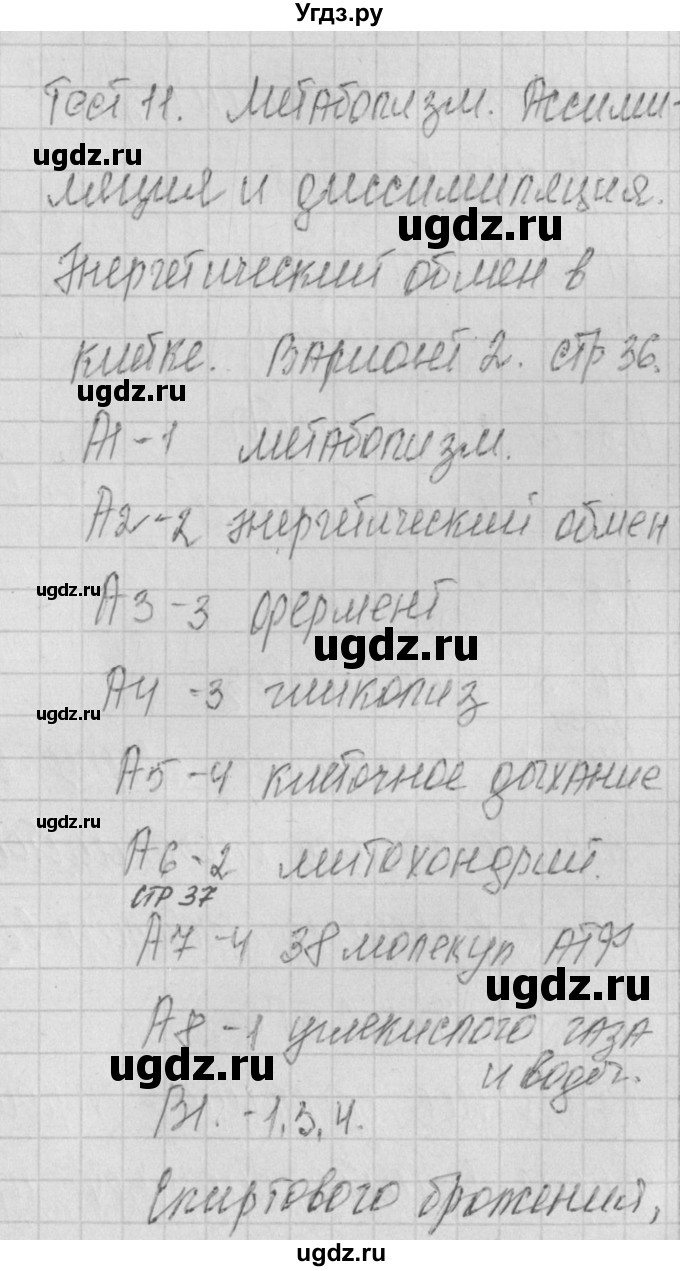 Угдз.ру
Тест 11. Метаболизм. Ассими-
ugdz.ru
ляция и диссимиляция.
ugdz.ru
Энергетический обмен в
клетке. Вариант 2. стр 36.
ugdz.ru
А1 - 1 метаболизм.
А2 - 2 энергетический обмен
ugdz.ru
А3 - 3 фермент
ugdz.ru
А4 - 3 гликолиз
ugdz.ru
А5 - 4 клеточное дыхание
ugdz.ru
А6 - 2 митохондрий.
стр 37
А7 - 4 38 молекул АТФ
ugdz.ru
А8 - 1 углекислого газа
и воды.
ugdz.ru
В1. - 1, 3, 4.
Спиртового брожения,
ugdz.ru